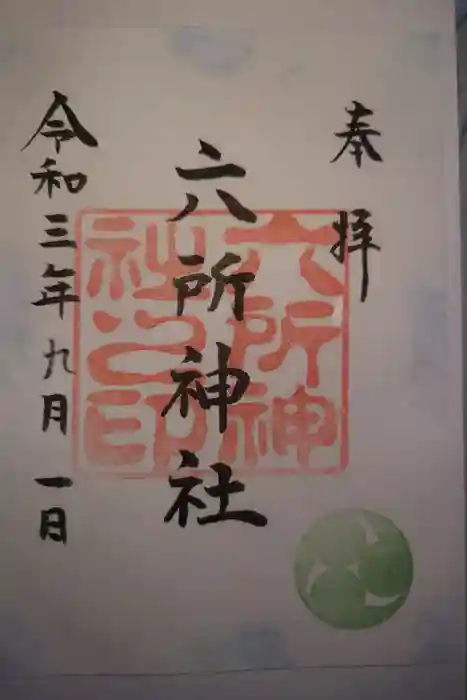 奉拝
六所神社
六所神社之印
令和三年九月一日